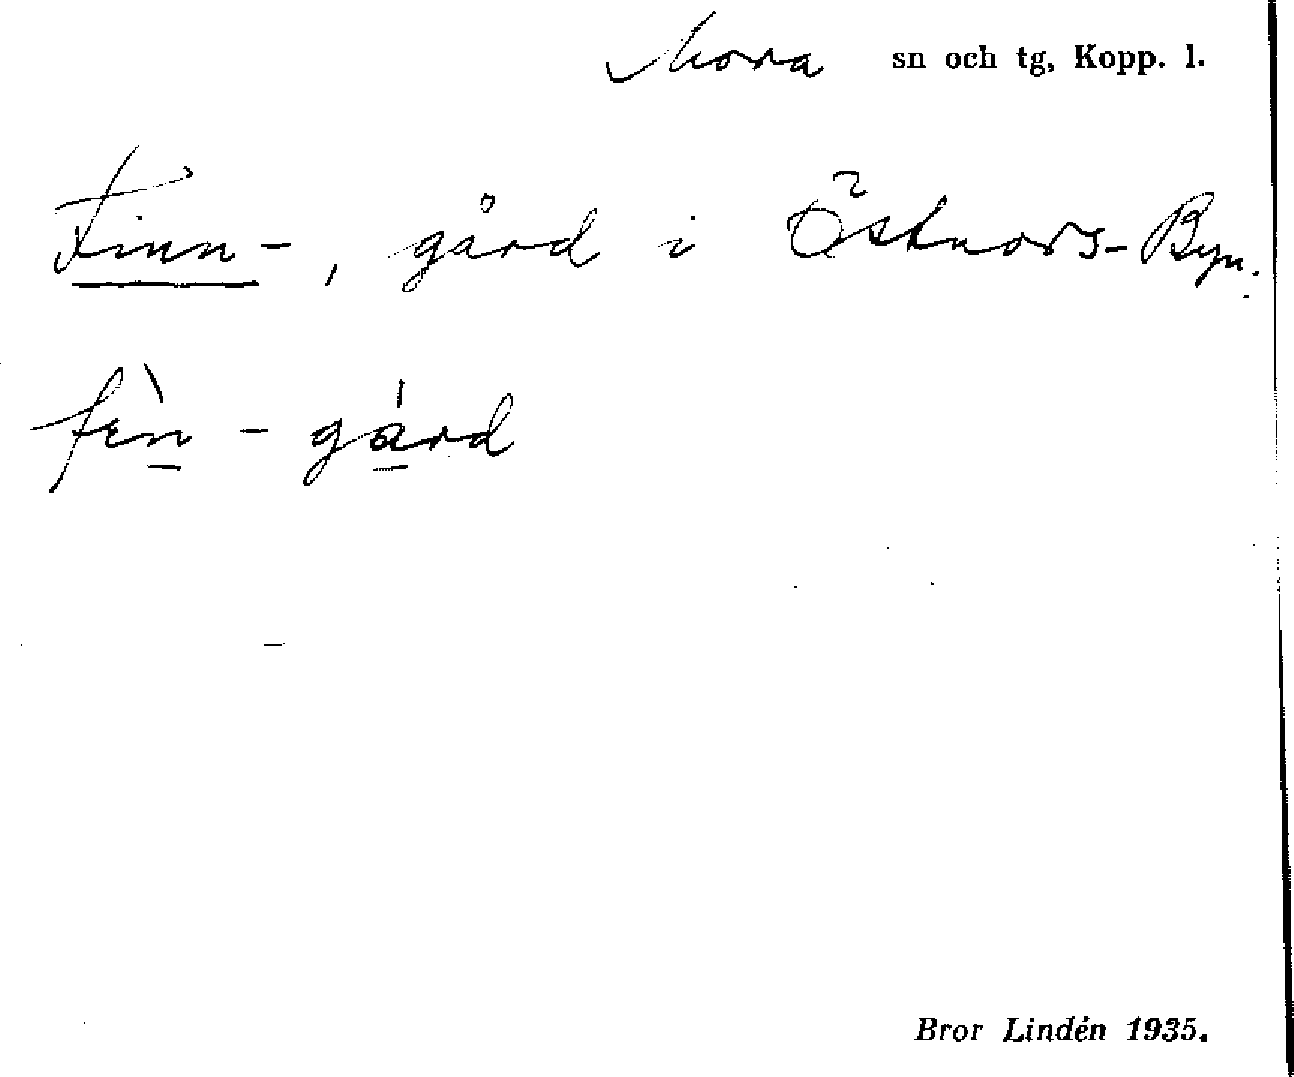 Mora sn och tg, Kopp. l.
Finn-, gård i Östnors-Byn.
fèn - gárd
Bror Lindén 1935.